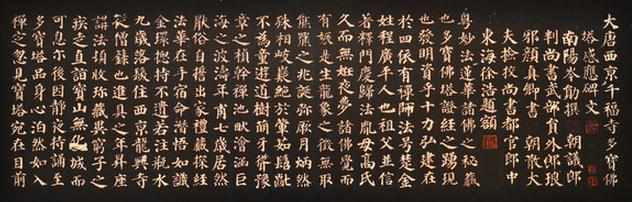 大唐西京千福寺多寶佛
塔感應碑文
南陽岑勛撰　朝議郎
判尚書武部員外郎琅
邪顏真卿書　朝散大
夫撿挍尚書都官郎中
東海徐浩題額
粤妙法蓮華諸佛之秘藏
也多寶佛塔證經之踴現
也發明資乎十力弘建在
於四依有禪師法号楚金
姓程廣平人也祖父並信
著釋門慶歸法胤母高氏
久而無妊夜夢諸佛覺而
有娠是生龍象之徵無取
熊羆之兆誕弥厥月炳然
殊相岐嶷絕於葷茹髫齔
不為童遊道樹萌牙聳豫
章之楨榦禪池畎澮涵巨
海之波濤年甫七歲居然
厭俗自誓出家禮藏探經
法華在手宿命潛悟如識
金環揔持不遺若注瓶水
九歲落髮住西京龍興寺
從僧籙也進具之年昇座
講法頓收珍藏異窮子之
疾走直詣寶山無化城而
可息尔後因靜夜持誦至
多寶塔品身心泊然如入
禪定忽見寶塔宛在目前